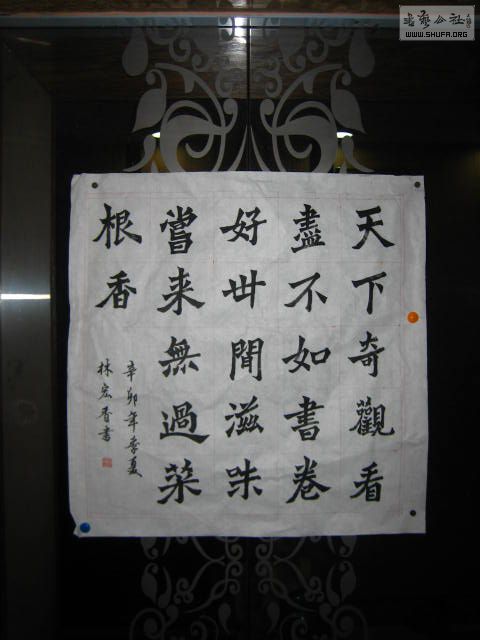 天下奇觀看
盡不如書卷
好世間滋味
嘗来無過菜
根香
辛卯年季夏
林宏香書
书艺公社
WWW.SHUFA.ORG